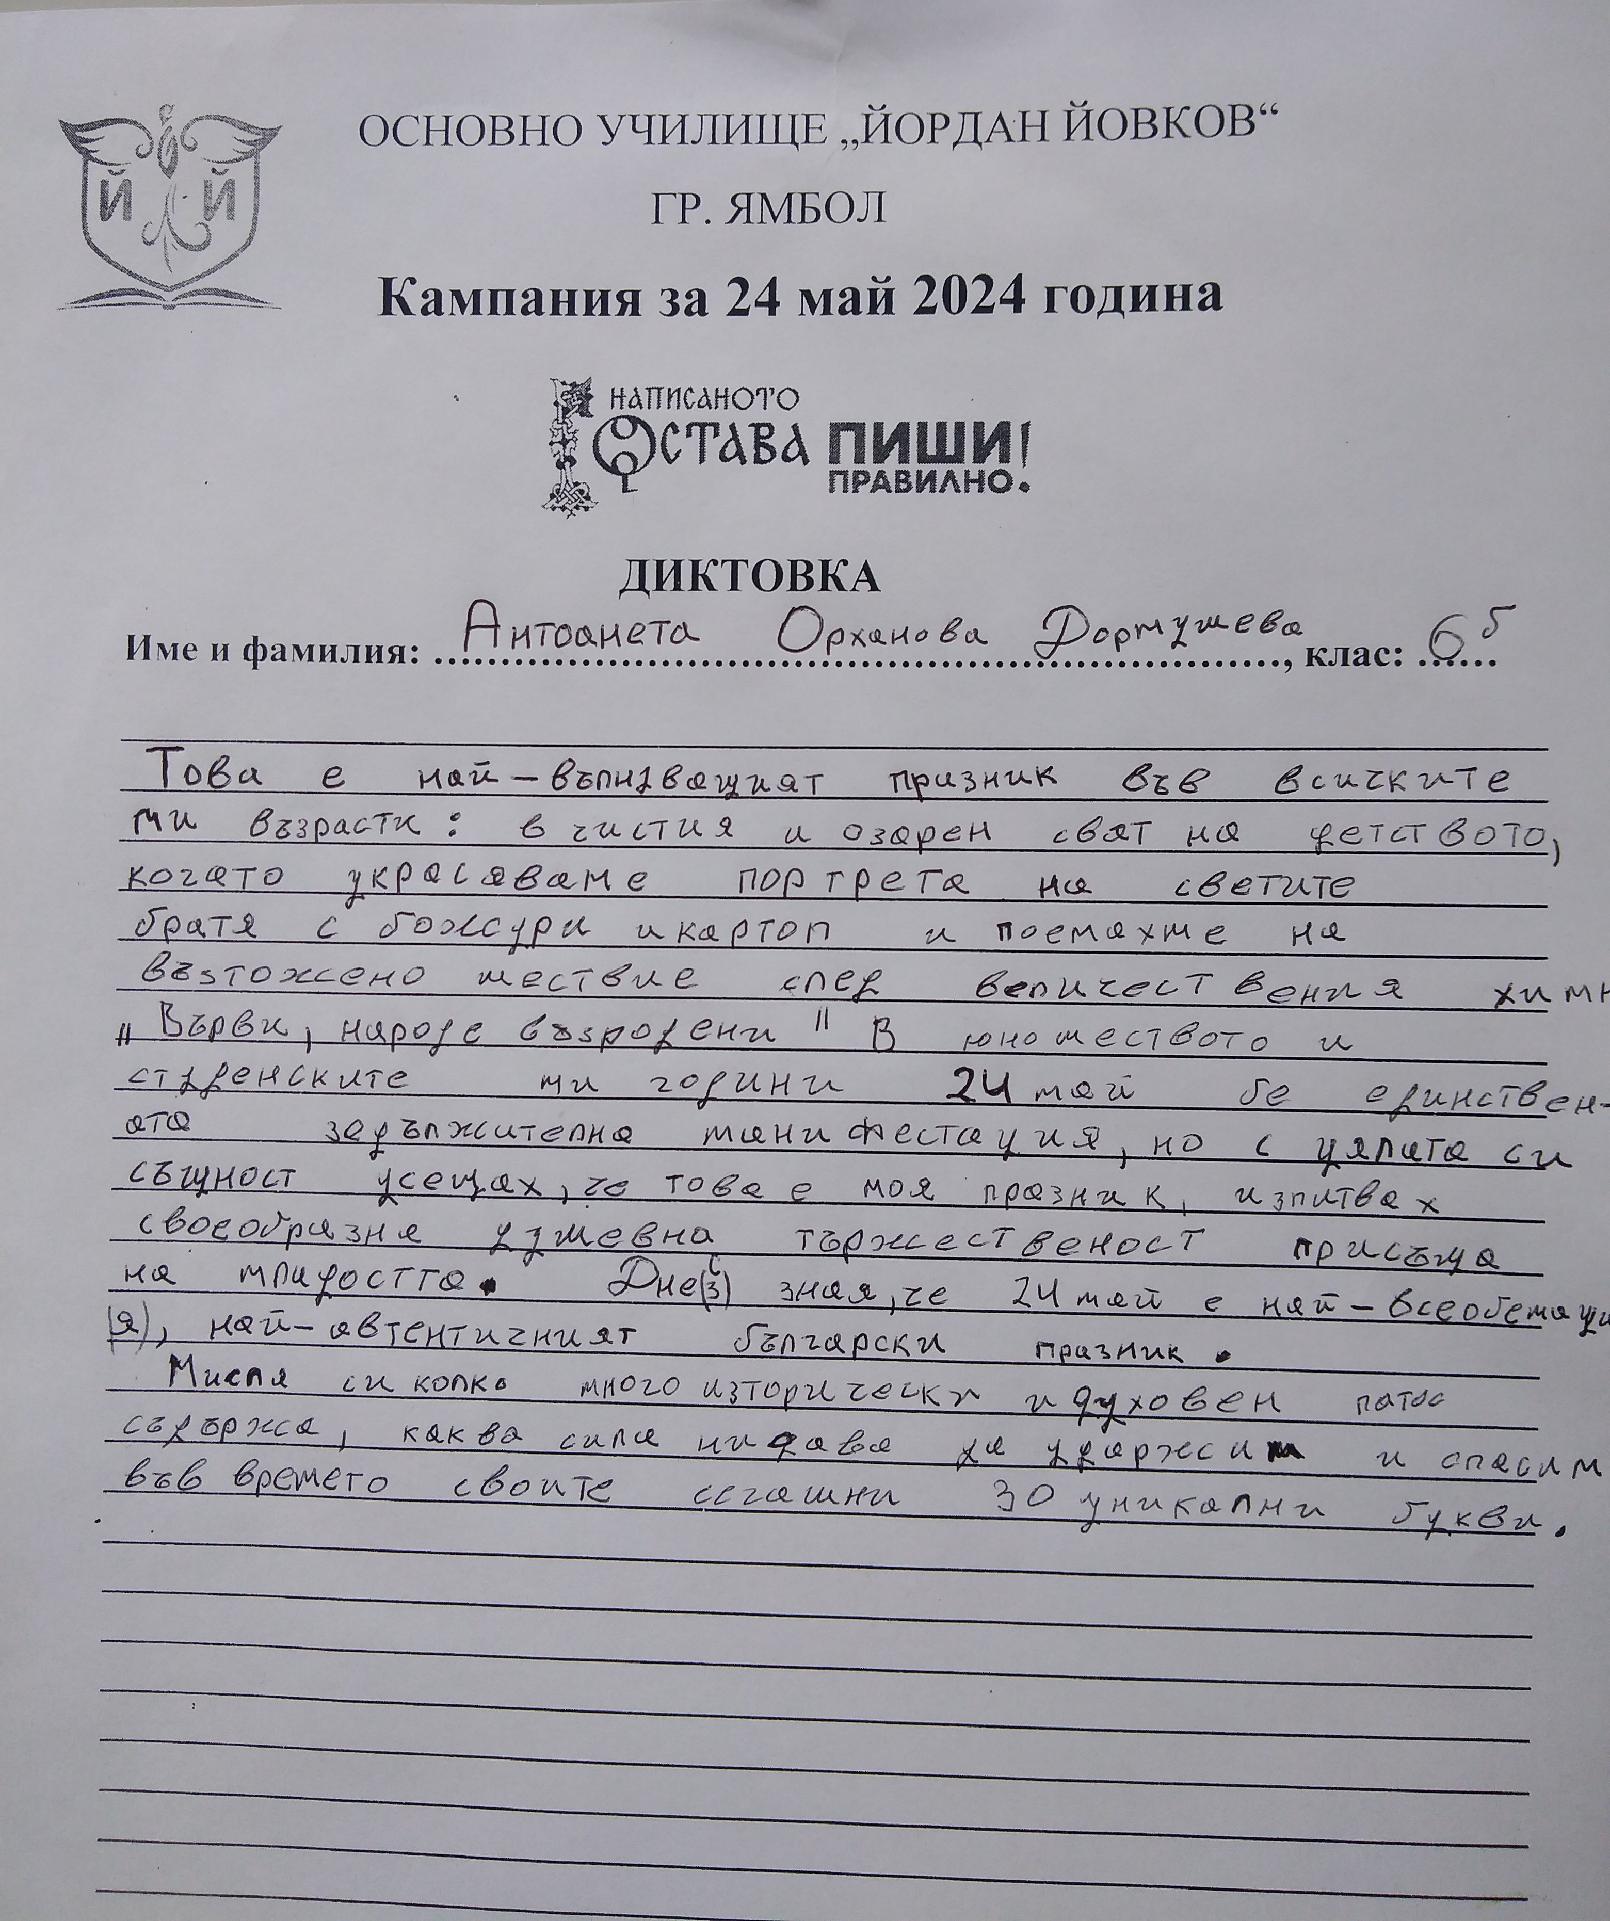 Й Й
ОСНОВНО УЧИЛИЩЕ „ЙОРДАН ЙОВКОВ“
ГР. ЯМБОЛ
Кампания за 24 май 2024 година
НАПИСАНОТО
ОСТАВА ПИШИ!
ПРАВИЛНО.
ДИКТОВКА
Име и фамилия: Антоанета Орханова Дормушева, клас: 6 б
Това е най-вълнуващият празник във всичките
ми възрасти: в чистия и озарен сват на детството,
когато украсяваме портрета на светите
братя с божури и картоп и поемахме на
възтожено шествие след величествения химн
„Върви, народе възродени" В юношеството и
студенските ми години 24 май бе единствен-
ата задължителна манифестация, но с цялата си
същност усещах, че това е моя празник, изпитвах
своеобразна душевна тържественост присъща
на младостта. Дне(з)с зная, че 24 май е най-всеобемащи
(я), най-автентичният български празник.
Мисля си колко много изторически и духовен патос
съдържа, каква сила ни дава да удържсим и спасим
във времето своите сегашни 30 уникални букви.